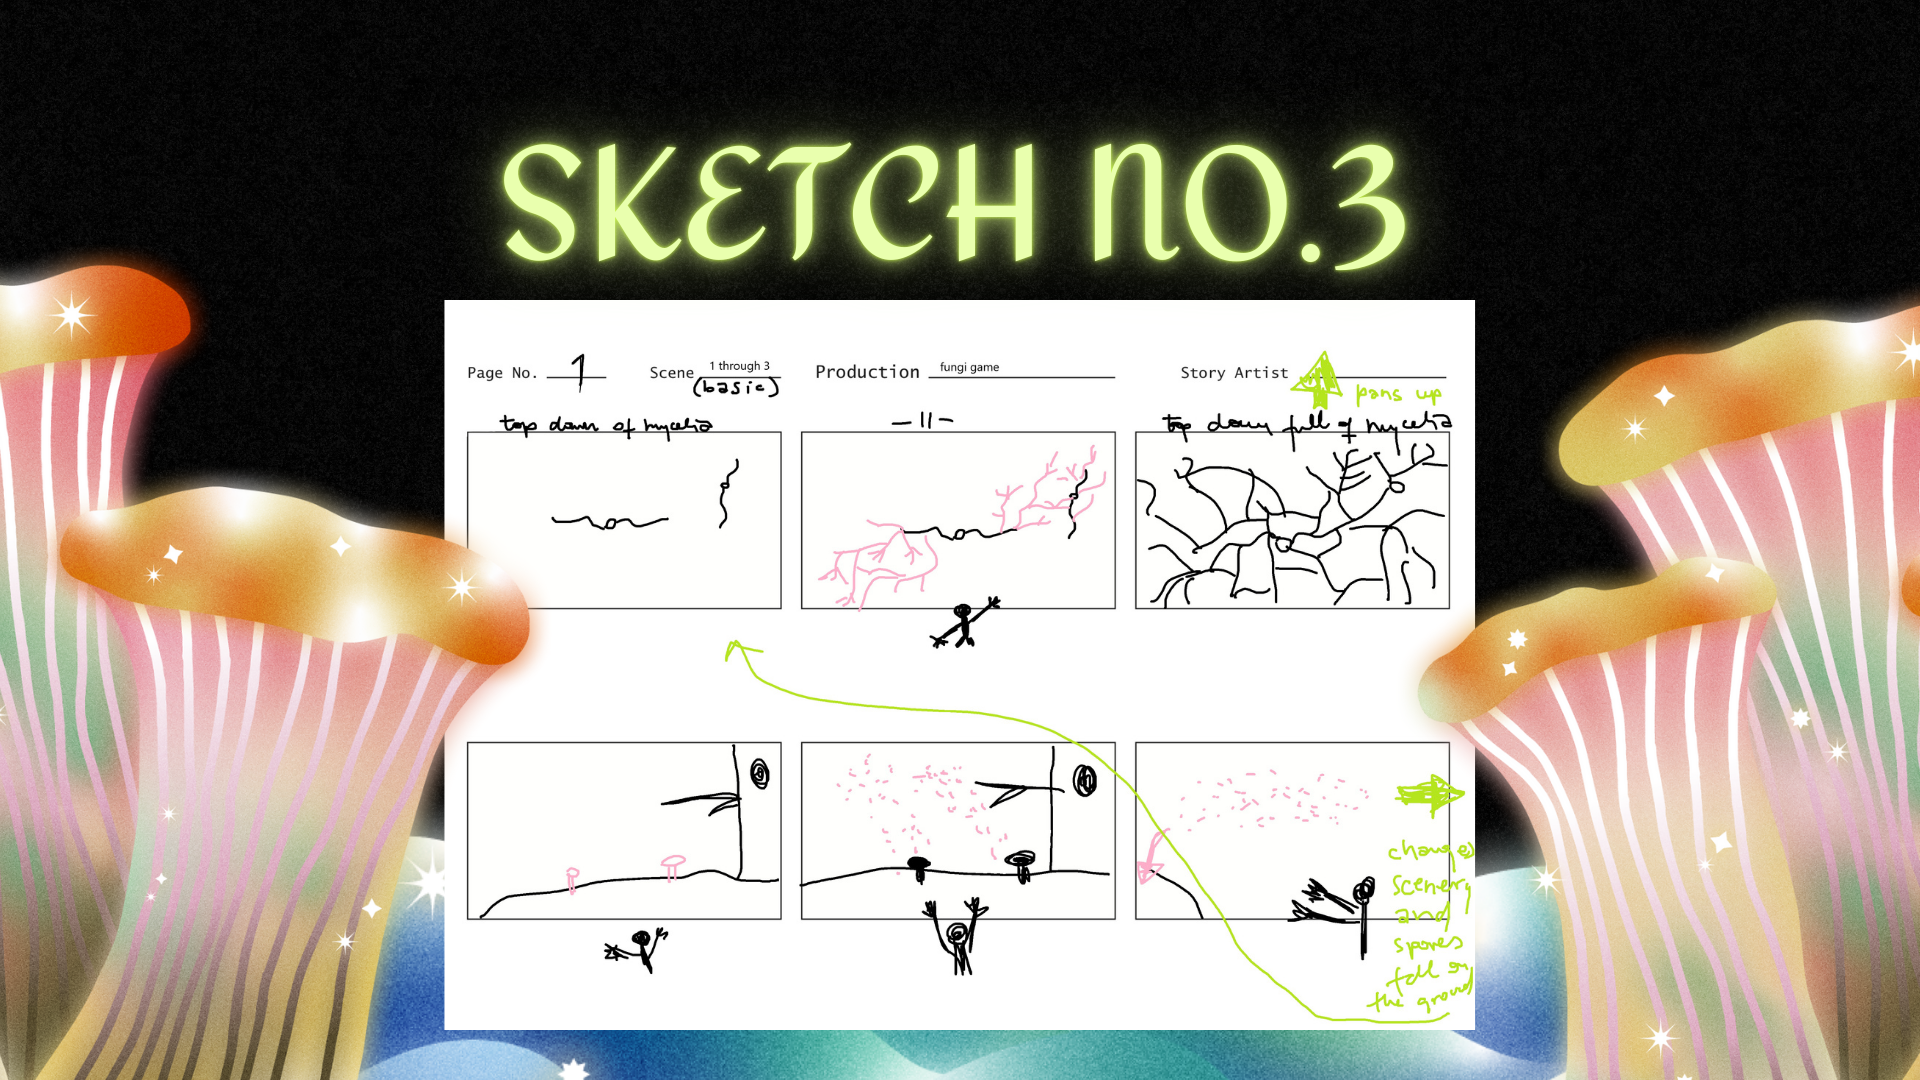 SKETCH NO.3
Page No. 1 Scene 1 through 3 Production fungi game Story Artist
(basic)
pans up
top down of mycelia
—11—
top down full of mycelia
changes
scenery
and
spores
fall on
the ground